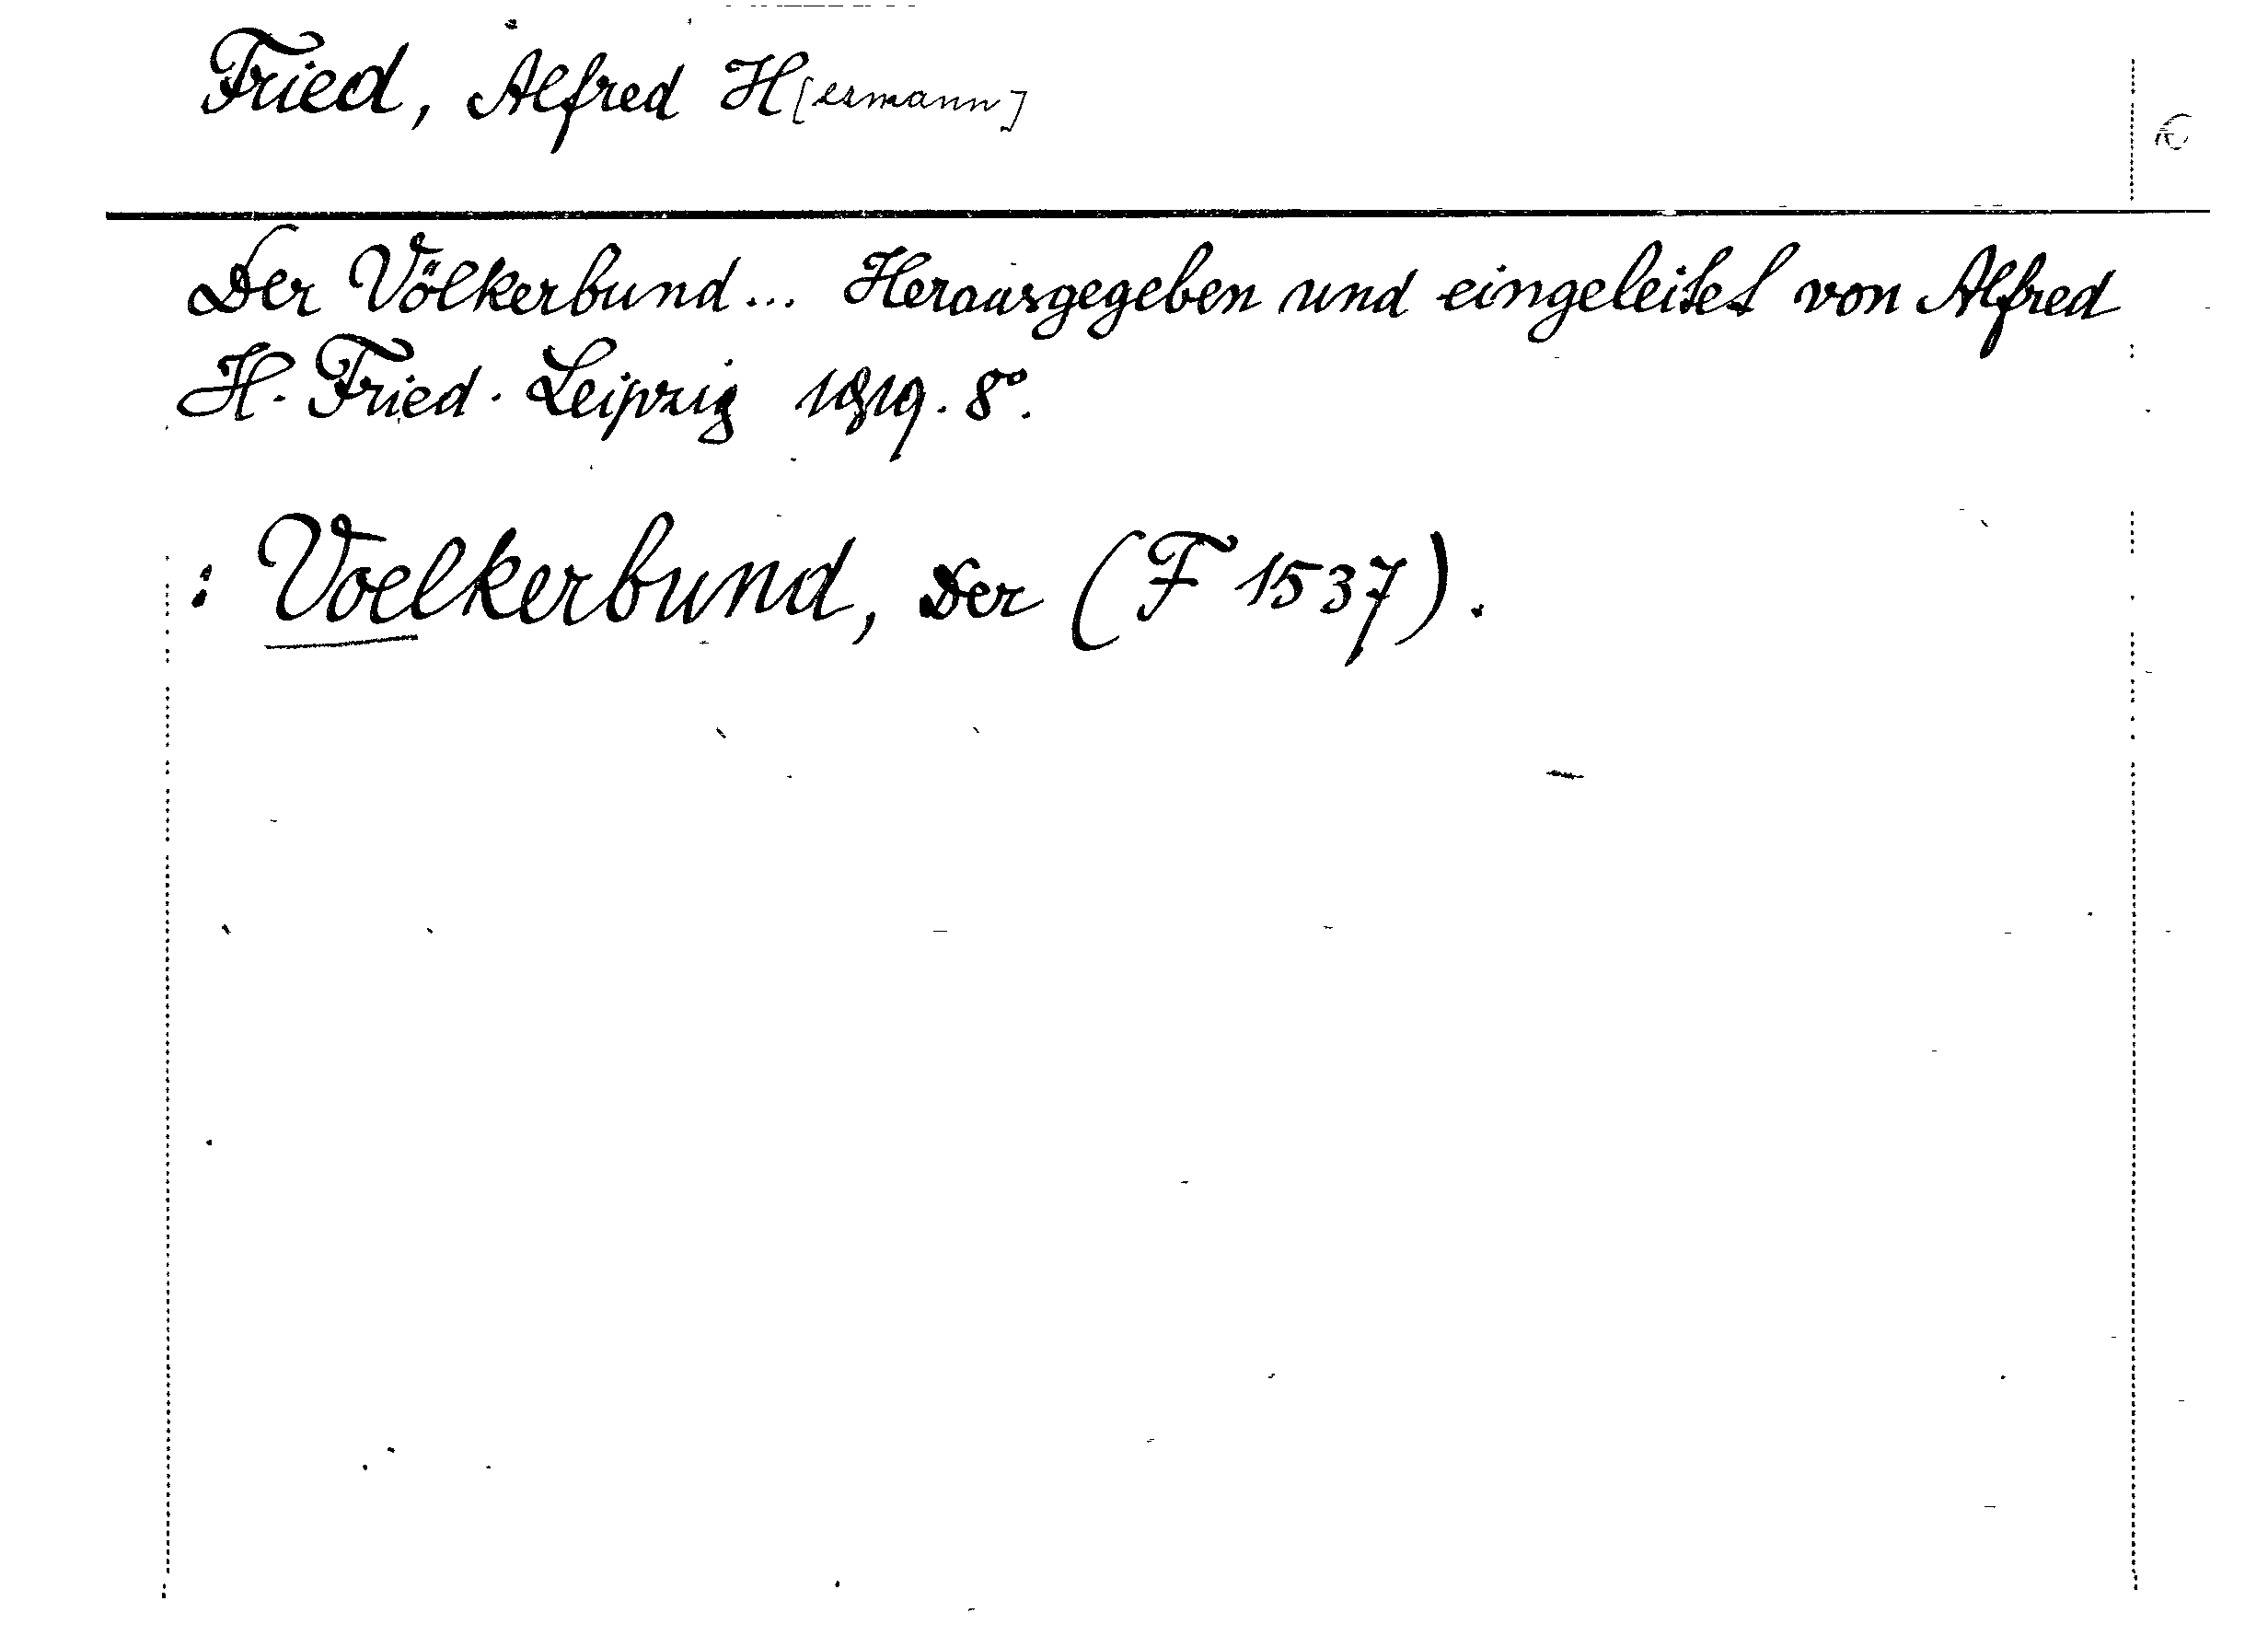 Fried, Alfred H[ermann]
Der Völkerbund... Herausgegeben und eingeleitet von Alfred
H. Fried. Leipzig 1919. 8°.
: Voelkerbund, Der (F 1537).